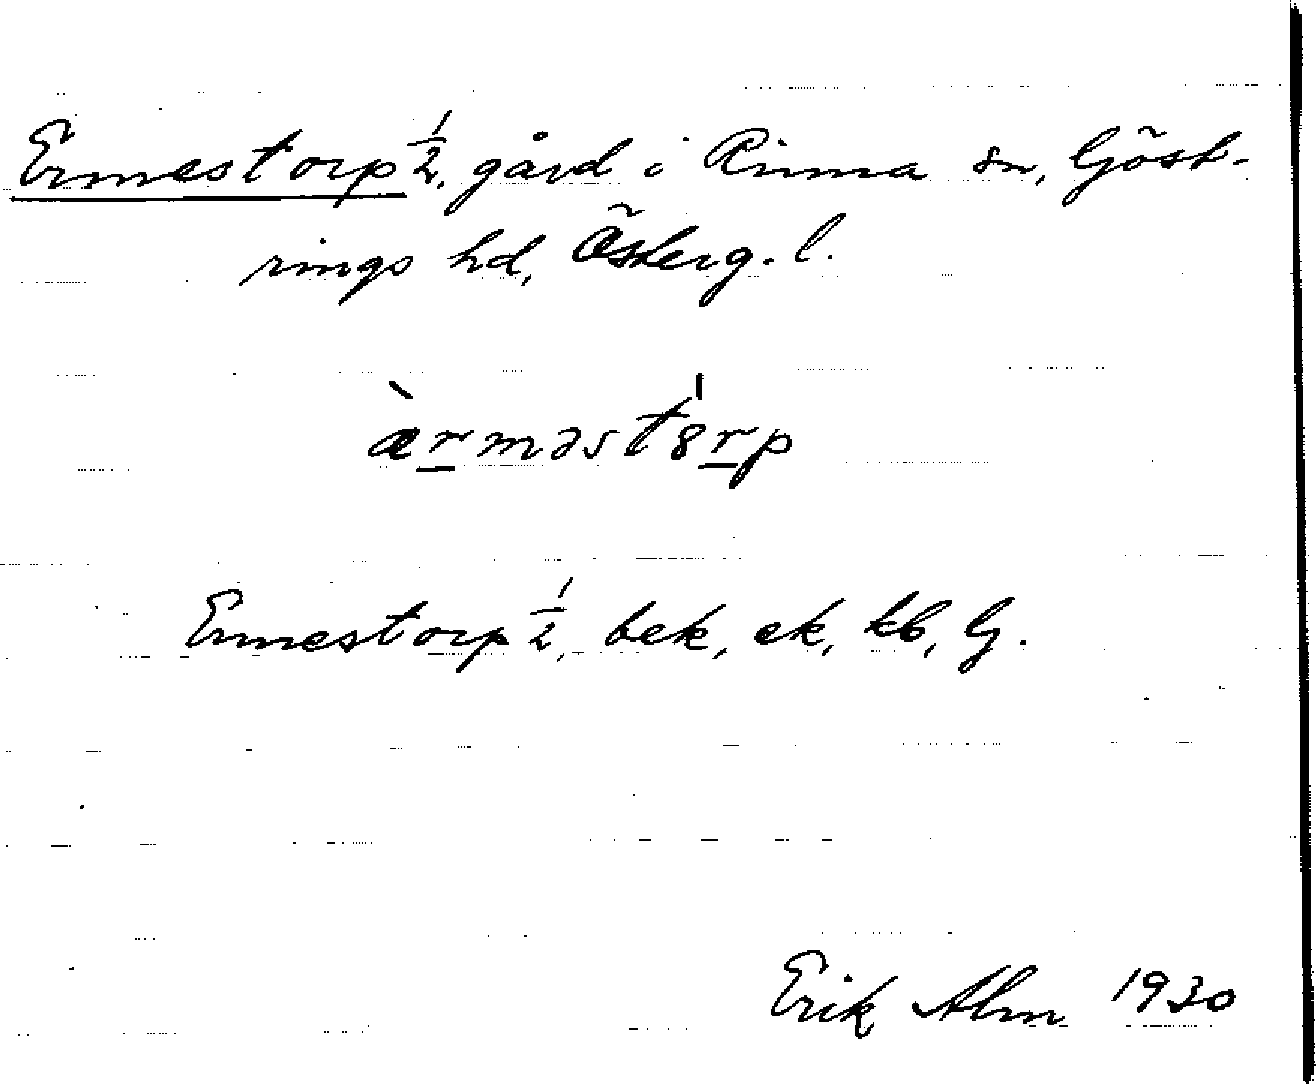 Ermestorp 1/2, gård i Rinna sn, Göst-
rings hd, Österg. l.
æ̀rməst8̍rp
Ermestorp 1/2, bek, ek, kb, G.
Erik Alm 1930